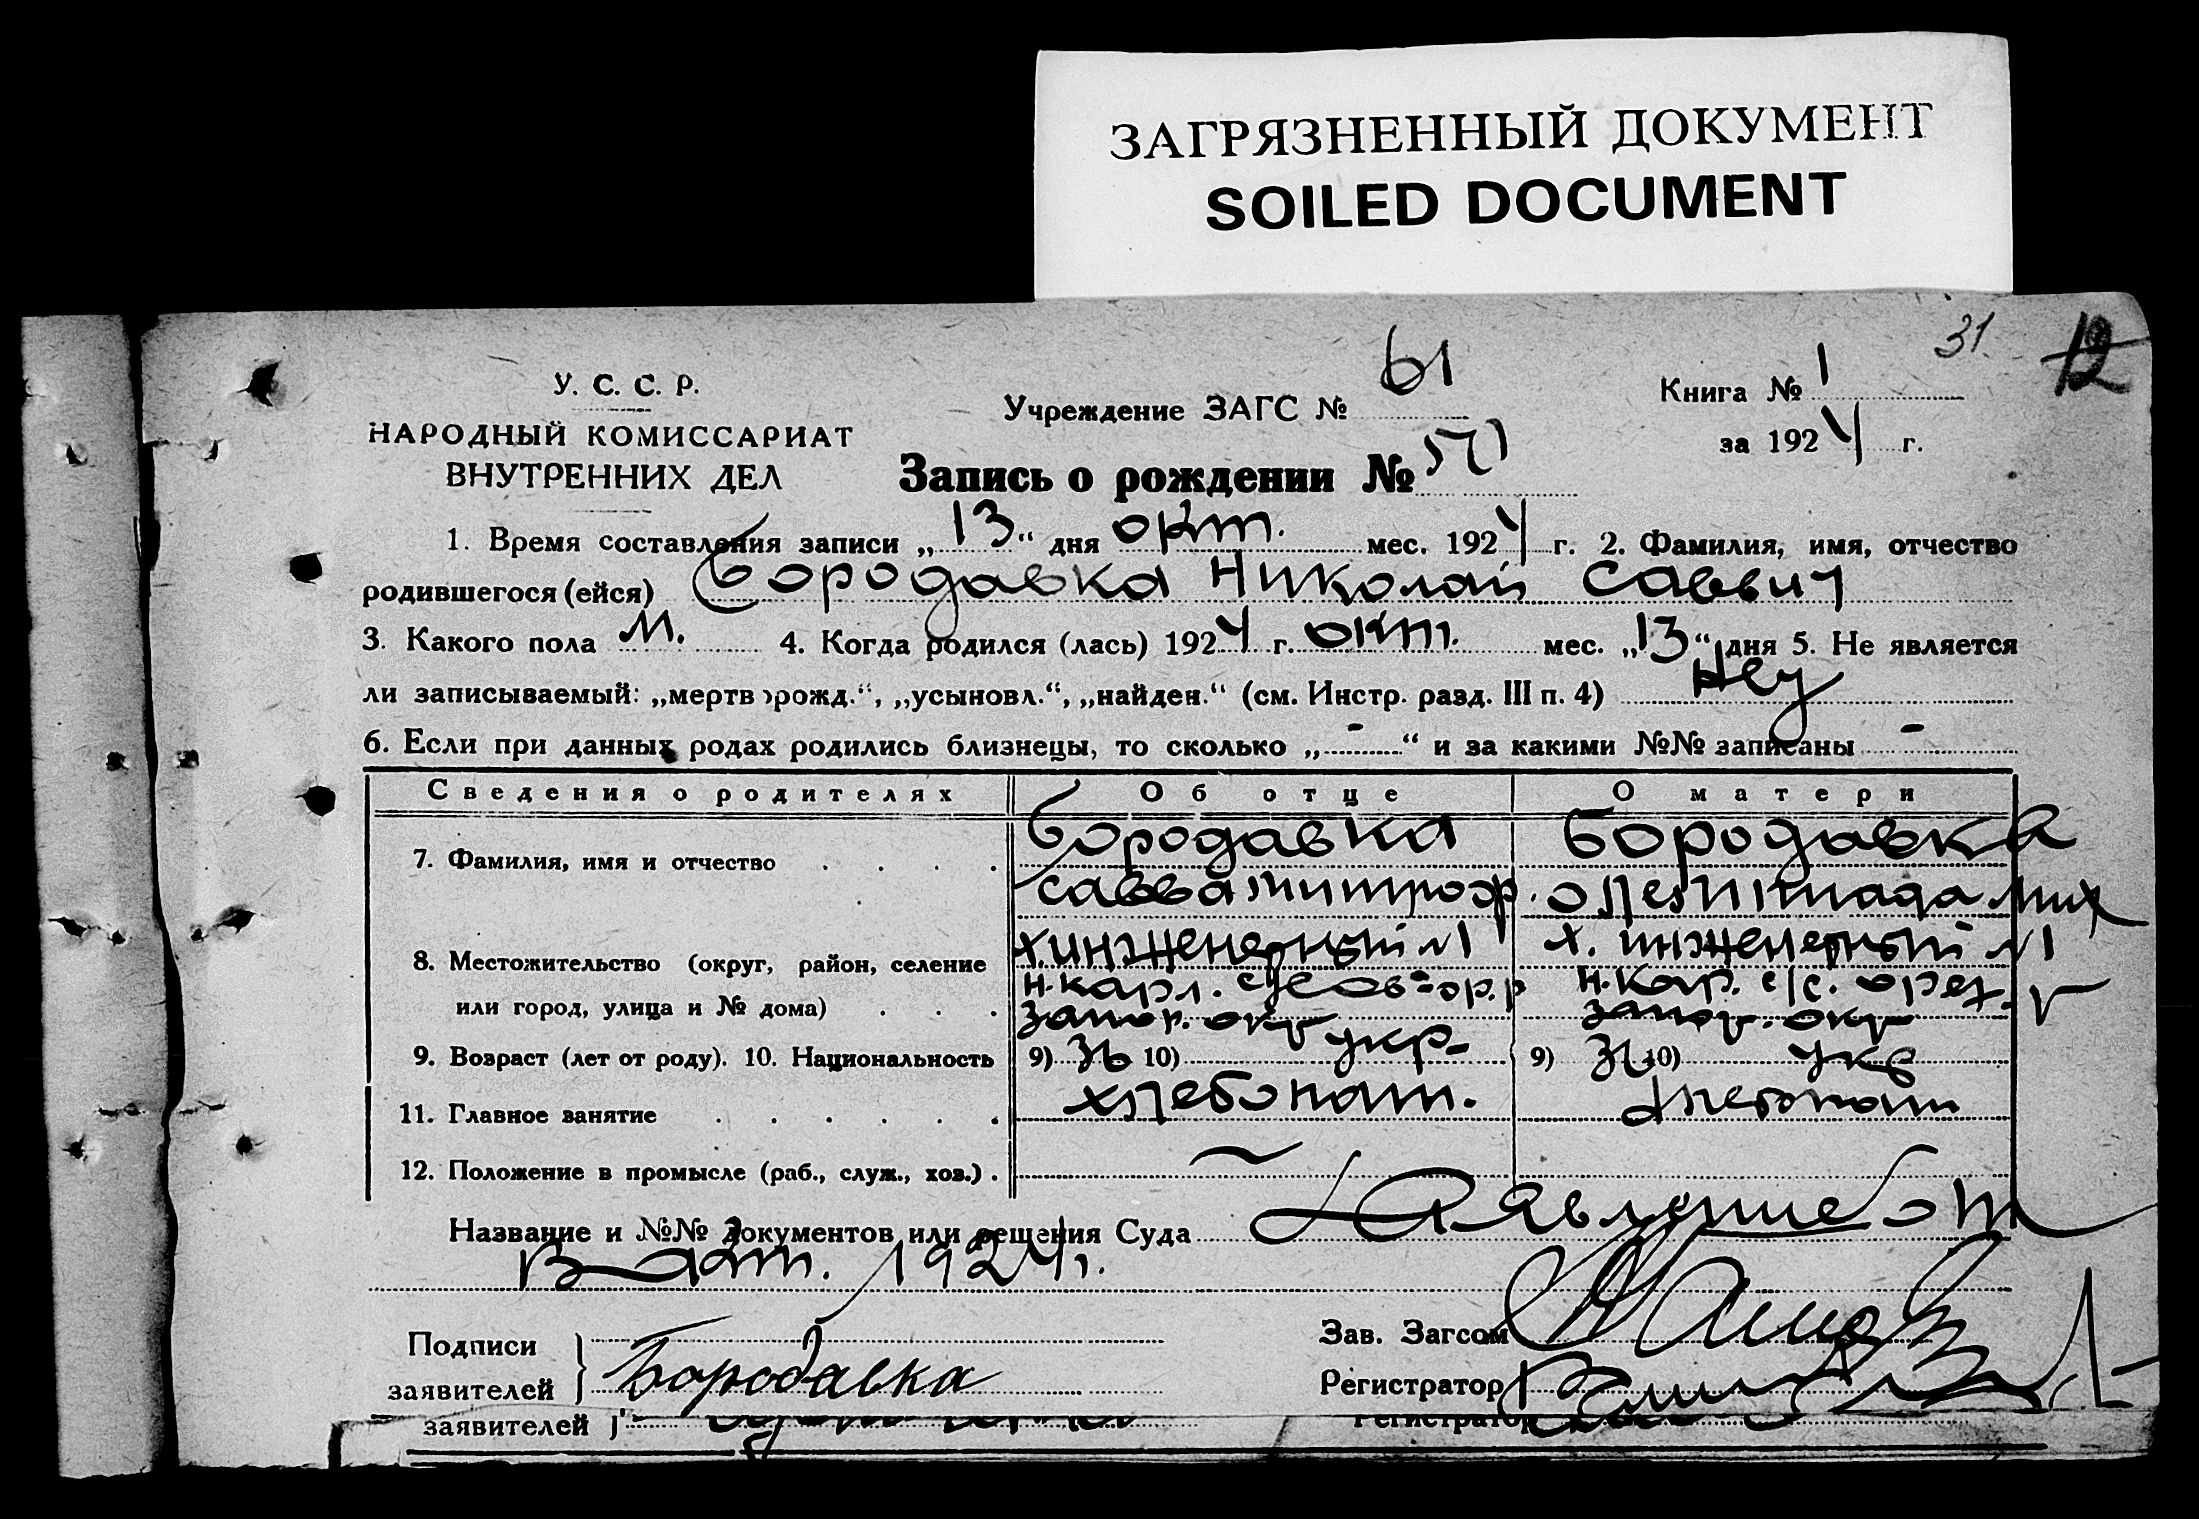 ЗАГРЯЗНЕННЫЙ ДОКУМЕНТ
SOILED DOCUMENT
31. 12
У. С. С. Р.
НАРОДНЫЙ КОМИССАРИАТ
ВНУТРЕННИХ ДЕЛ
Учреждение ЗАГС № 61
Книга № 1
за 1924 г.
Запись о рождении № 571
1. Время составления записи „13“ дня окт. мес. 1924 г. 2. Фамилия, имя, отчество
родившегося (ейся) Бородавка Николай Саввич
3. Какого пола м. 4. Когда родился (лась) 1924 г. окт. мес. „13“ дня 5. Не является
ли записываемый: „мертворожд.“, „усыновл.“, „найден.“ (см. Инстр. разд. III п. 4)
6. Если при данных родах родились близнецы, то сколько „-“ и за какими №№ записаны -
Сведения о родителях Об отце О матери
7. Фамилия, имя и отчество . . . . Бородавка Бородавка
Савва Митроф. Мих
8. Местожительство (округ, район, селение х. инженерный №1 х. инженерный №1
или город, улица и № дома) . . . н. карл. ор. р н. кар. с/с. орех. р
запор. окр запор. окр
9. Возраст (лет от роду). 10. Национальность 9) 36 10) укр- 9) 10) укр
11. Главное занятие . . . . . . хлебопаш. хлебопаш
12. Положение в промысле (раб., служ., хоз.) . —
Название и №№ документов или решения Суда Заявление от
13 окт. 1924 г.
Подписи
заявителей } Бородавка
Зав. Загсом
Регистратор
заявителей }
Регистратор